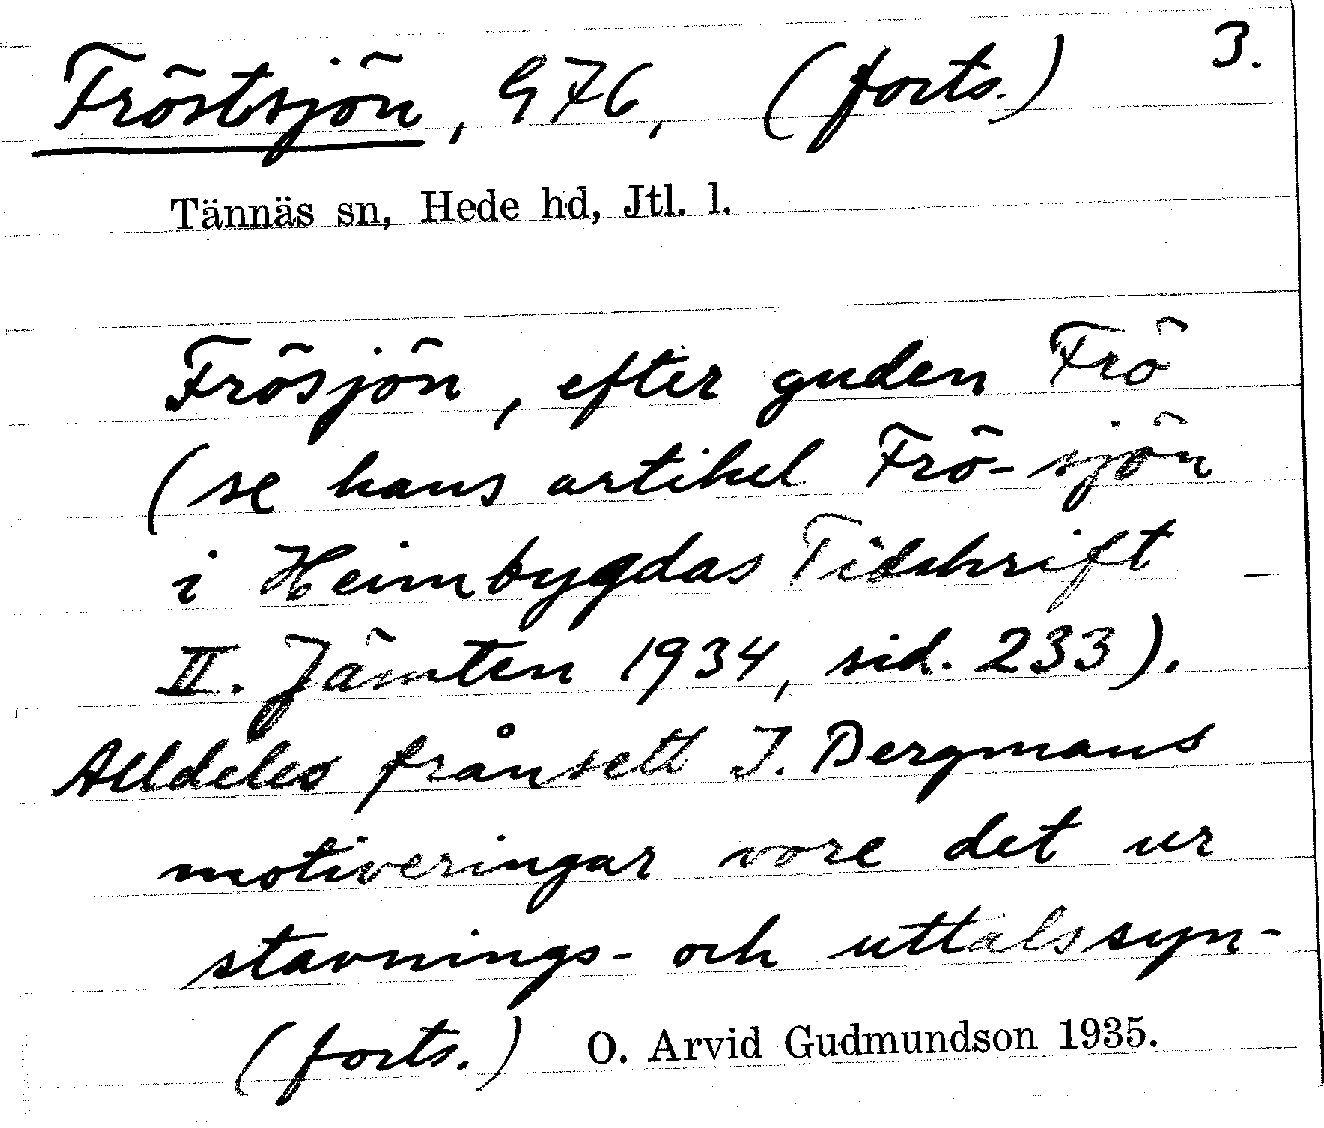 3.
Fröstsjön, G76, (forts.)
Tännäs sn, Hede hd, Jtl. l.
Frösjön, efter guden Frö
(se hans artikel Frö-sjön
i Heimbygdas Tidskrift
II. Jämten 1934, sid. 233).
Alldeles frånsett J. Bergmans
motiveringar vore det ur
stavnings- och uttalssyn-
(forts.) O. Arvid Gudmundson 1935.